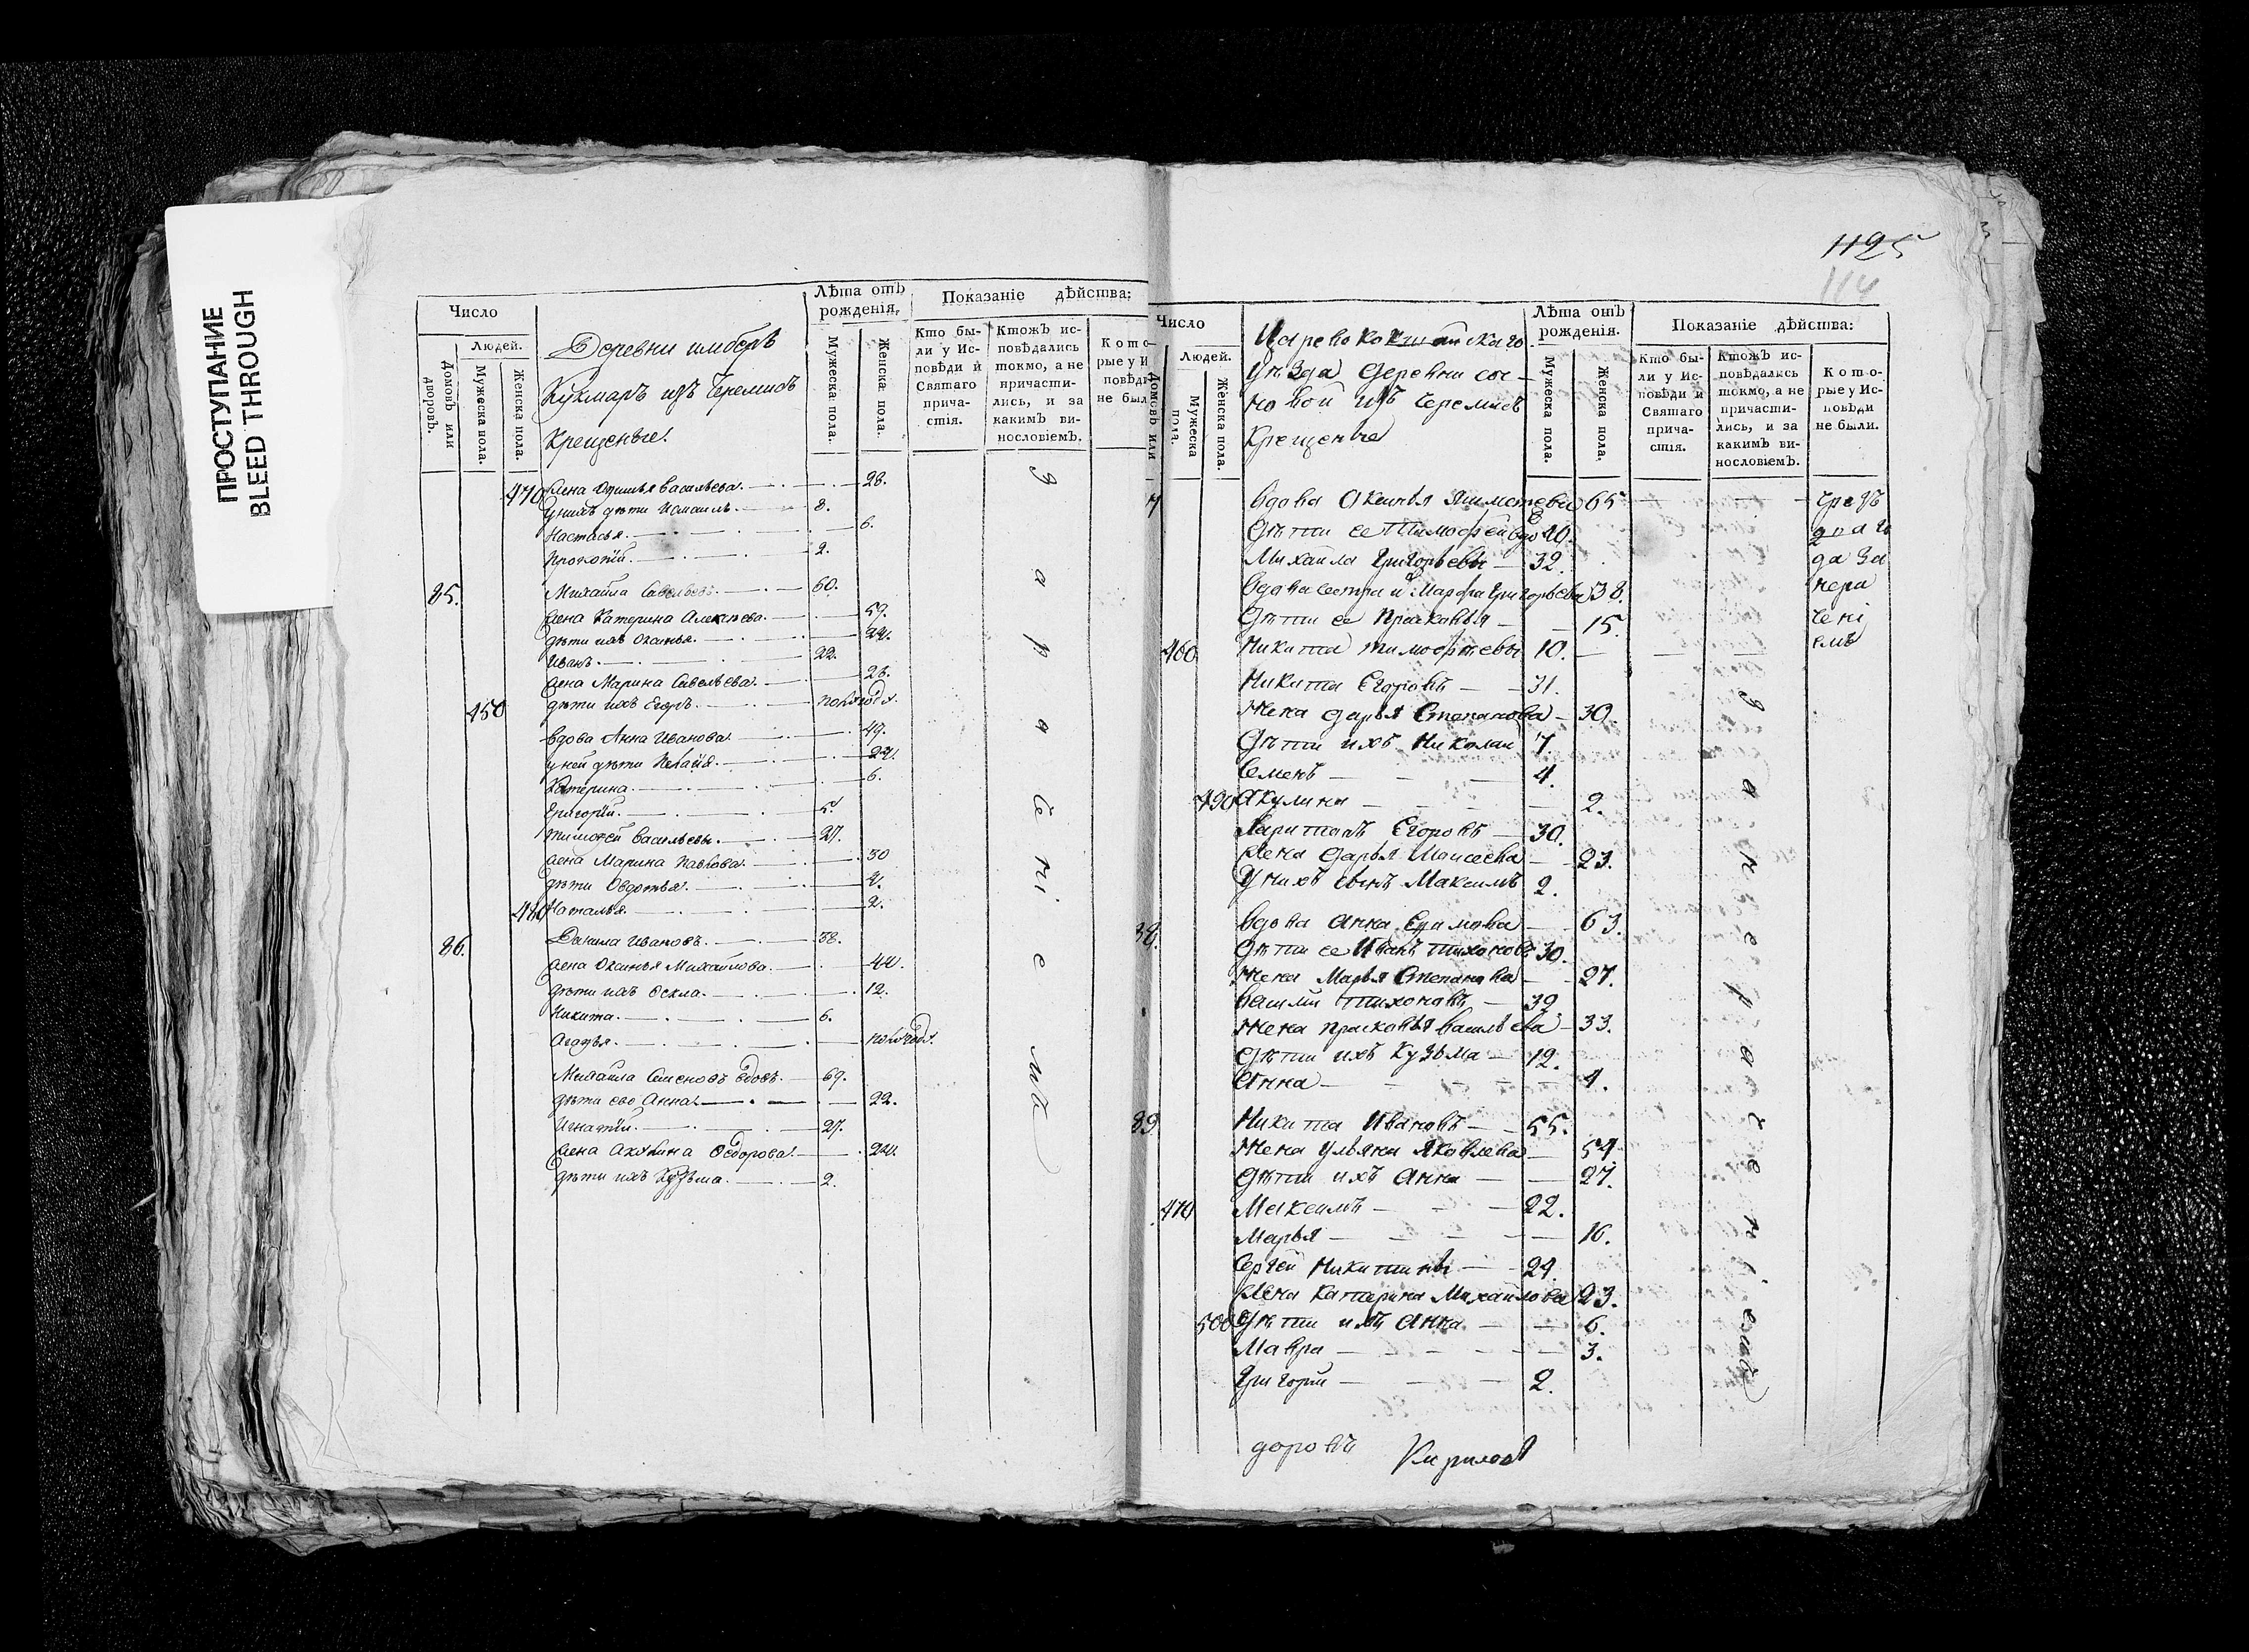 ПРОСТУПАНИЕ
BLEED THROUGH
Число
Людей.
Домовъ или дворовъ.
Мужеска пола.
Женска пола.
Деревни шиберъ
Кукмаръ изъ Черемисъ
Крещеные.
Лѣта отъ рожденія.
Мужеска пола.
Женска пола.
Показаніе дѣйства:
Кто были у Исповѣди и Святаго причастія.
Ктожъ исповѣдались токмо, а не причастились, и за какимъ винословіемъ.
Кото-
рые у И
повѣди
не был
470 жена Васильева. 28.
у нихъ дѣти 8.
Настасья. 6.
Прокопій. 2.
85. Михайла Савельевъ. 60.
жена Катерина Алексѣева. 59.
дѣти ихъ Оксинья. 24.
Иванъ. 22.
жена Марина Савельева. 28.
450 дѣти ихъ Егоръ. полгода.
вдова Анна Иванова. 49.
у ней дѣти 24.
Катерина. 6.
Григорій. 5.
Тимофей Васильевы. 27.
жена Марина Павлова. 30
дѣти Овдотья. 4.
480 Наталья. 2.
86. Данила Ивановъ. 38.
жена Оксинья Михайлова. 44.
дѣти ихъ Фекла. 12.
Никита. 6.
Агафья. полгода.
Михайла Семеновъ вдовъ. 69.
дѣти ево Анна. 22.
Игнатій. 27.
жена Акулина Федорова. 24.
дѣти ихъ Козьма. 2.
за нераченіемъ
1125
114
Число
Людей.
Домовъ или
Мужеска пола.
Женска пола.
Царевококшайскаго
уѣзда деревни сы-
новой изъ черемисъ
Крещеные
Лѣта отъ рожденія.
Мужеска пола.
Женска пола.
Показаніе дѣйства:
Кто были у Исповѣди и Святаго причастія.
Ктожъ исповѣдались токмо, а не причастились, и за какимъ винословіемъ.
Которые у Исповѣди не были.
7 вдова Аксинья 65
дѣти ее Тимофей вдо 40.
Михаила Григорьевы 32.
вдова сестра и Марфа Григорьева 38.
дѣти ее Прасковья 15.
460 Никита Тимофѣевы 10.
Никита Егоровъ 31.
жена дарья Степанова 30.
дѣти ихъ Николаи 7.
Семенъ 4.
490 Акулина 2.
Харитонъ Егоровъ 30.
жена дарья Моисеева 23.
у нихъ сынъ Максимъ 2.
38. вдова Анна Ефимова 63.
дѣти ее Иванъ Тихоновъ 30.
жена Марья Степанова 27.
Василій Тихоновъ 39.
жена Прасковья Васильева 33.
дѣти ихъ Кузьма 12.
Анна 4.
89 Никита Ивановъ 55.
жена Ульяна Яковлева 54.
дѣти ихъ Анна 27.
470 Максимъ 22.
Марья 16.
Сергей Никитины 24.
жена Катерина Михаилова 23.
500 дѣти ихъ Анна 6.
Мавра 3.
Григорій 2.
за нераченіемъ
доровъ Кирилов